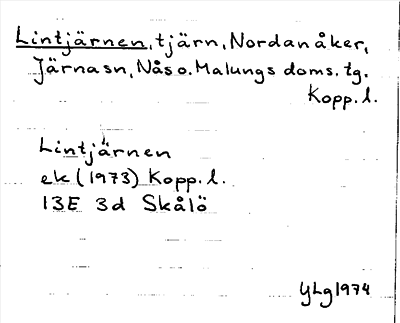 Lintjärnen, tjärn, Nordanåker,
Järnasn, Nås o. Malungs doms. tg.
Kopp. l.
Lintjärnen
ek (1973) Kopp. l.
13E 3d Skålö
YLg 1974